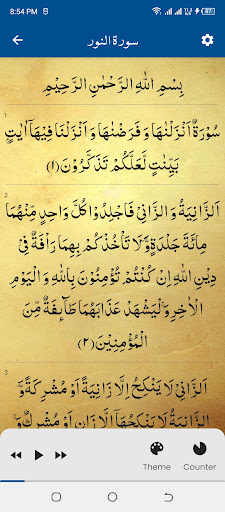 8:54 PM
سورة النور
بِسْمِ اللهِ الرَّحْمٰنِ الرَّحِيْمِ
سُوْرَةٌ اَنْزَلْنٰهَا وَفَرَضْنٰهَا وَاَنْزَلْنَا فِيْهَاۤ اٰيٰتٍۭ
بَيِّنٰتٍ لَّعَلَّكُمْ تَذَكَّرُوْنَ (۱)
2
اَلزَّانِيَةُ وَالزَّانِيْ فَاجْلِدُوْا كُلَّ وَاحِدٍ مِّنْهُمَا
مِائَةَ جَلْدَةٍ ۪ وَّلَا تَاْخُذْكُمْ بِهِمَا رَاْفَةٌ فِيْ
دِيْنِ اللهِ اِنْ كُنْتُمْ تُؤْمِنُوْنَ بِاللهِ وَالْيَوْمِ
الْاٰخِرِ ۚ وَلْيَشْهَدْ عَذَابَهُمَا طَآئِفَةٌ مِّنَ
الْمُؤْمِنِيْنَ (۲)
3
اَلزَّانِيْ لَا يَنْكِحُ اِلَّا زَانِيَةً اَوْ مُشْرِكَةً ۫ وَّ
الزَّانِيَةُ لَا يَنْكِحُهَاۤ اِلَّا زَانٍ اَوْ مُشْرِكٌ ۚ وَ
Theme Counter